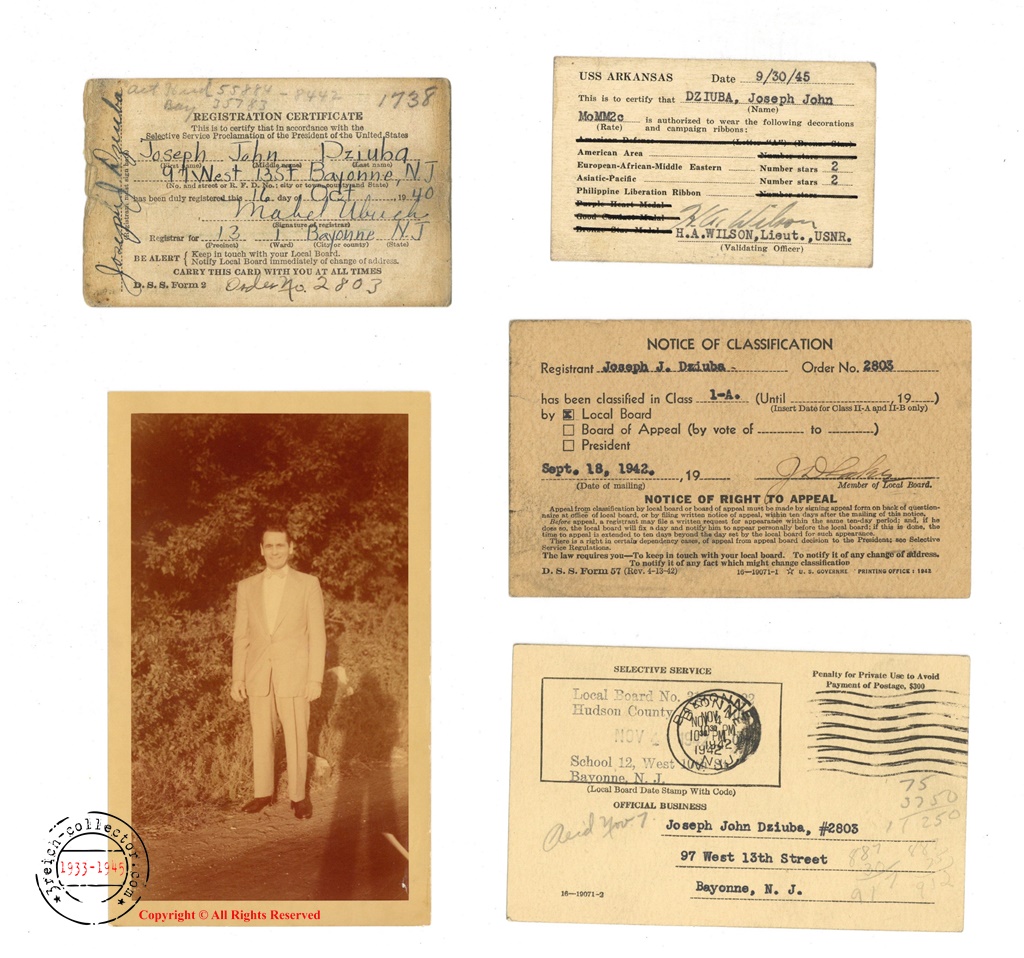 Act Hud 55884 - 8442
Bay 35783
1738
Joseph J Dziuba
REGISTRATION CERTIFICATE
This is to certify that in accordance with the
Selective Service Proclamation of the President of the United States
Joseph John Dziuba
(First name) (Middle name) (Last name)
97 West 13 St Bayonne, NJ
(No. and street or R. F. D. No.; city or town, county and State)
has been duly registered this 16 day of Oct, 1940
Mabel
(Signature of registrar)
Registrar for 13 1 Bayonne N.J.
(Precinct) (Ward) (City or county) (State)
BE ALERT { Keep in touch with your Local Board.
Notify Local Board immediately of change of address.
CARRY THIS CARD WITH YOU AT ALL TIMES
D. S. S. Form 2 Order No. 2803
USS ARKANSAS Date 9/30/45
This is to certify that DZIUBA, Joseph John
(Name)
MoMM2c is authorized to wear the following decorations
(Rate) and campaign ribbons:
American Defense (Letter "A") (Bronze Star)
American Area Number stars
European-African-Middle Eastern Number stars 2
Asiatic-Pacific Number stars 2
Philippine Liberation Ribbon Number stars
Purple Heart Medal
Good Conduct Medal
Bronze Star Medal
H.A. Wilson
H.A.WILSON,Lieut.,USNR.
(Validating Officer)
NOTICE OF CLASSIFICATION
Registrant Joseph J. Dziuba - Order No. 2803
has been classified in Class 1-A. (Until , 19 )
(Insert Date for Class II-A and II-B only)
by ☒ Local Board
☐ Board of Appeal (by vote of to )
☐ President
Sept. 18, 1942. , 19
(Date of mailing) Member of Local Board.
NOTICE OF RIGHT TO APPEAL
Appeal from classification by local board or board of appeal must be made by signing appeal form on back of question-
naire at office of local board, or by filing written notice of appeal, within ten days after the mailing of this notice.
Before appeal, a registrant may file a written request for appearance within the same ten-day period; and, if he
does so, the local board will fix a day and notify him to appear personally before the local board; if this is done, the
time to appeal is extended to ten days beyond the day set by the local board for such appearance.
There is a right in certain dependency cases, of appeal from appeal board decision to the President; see Selective
Service Regulations.
The law requires you—To keep in touch with your local board. To notify it of any change of address.
To notify it of any fact which might change classification
D. S. S. Form 57 (Rev. 4-13-42) 16—19071-1 ☆ U. S. GOVERNME PRINTING OFFICE : 1942
SELECTIVE SERVICE
Penalty for Private Use to Avoid
Payment of Postage, $300
Local Board No.
Hudson County
NOV
School 12, West
Bayonne, N. J.
BAYONNE N.J.
NOV 4
10 30 PM
1942
(Local Board Date Stamp With Code)
OFFICIAL BUSINESS
75
3750
11250
Joseph John Dziuba, #2803
97 West 13th Street
Bayonne, N. J.
16—19071-2
3reich-collector.com
1933-1945
Copyright © All Rights Reserved